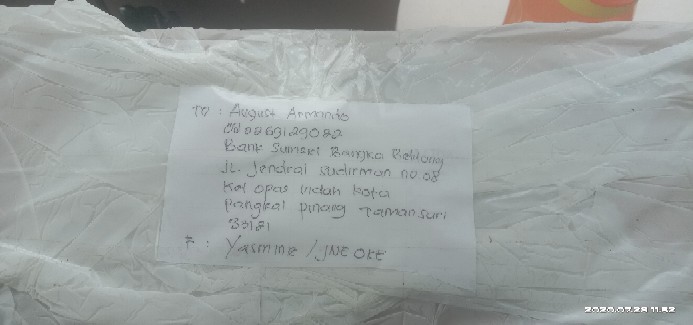 TO : August Armando
Bank Sumsel Bangka Belitong
JL. Jendral Sudirman no 08
Kel Opas indah kota
Pangkal pinang Taman sari
33121
F : Yasmine / JNE OKE
2020.07.28 11:52